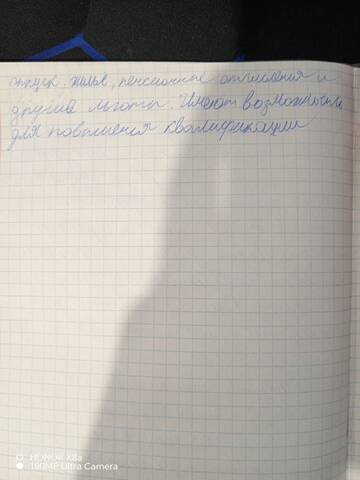 отпуск, жильё, пенсионные отчисления и
другие льготы. Имеют возможность
для повышения квалификации
HONOR X8a
100MP Ultra Camera